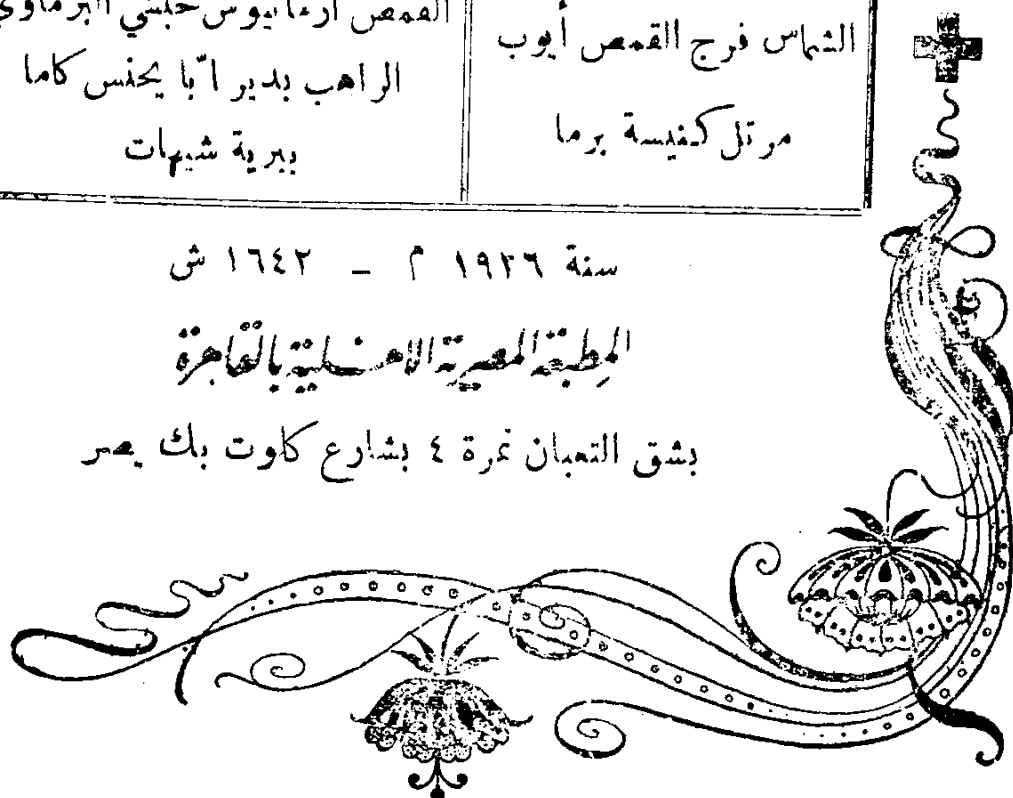 الشماس فرج القمص أيوب
مرتل كنيسة برما
القمص حبشي البرماوي
الراهب بدير أبّا يحنس كاما
ببرية شيهات
سنة ١٩٢٦ م – ١٦٤٢ ش
المطبعة المصرية الاهلية بالقاهرة
بشق التعبان نمرة ٤ بشارع كلوت بك بمصر